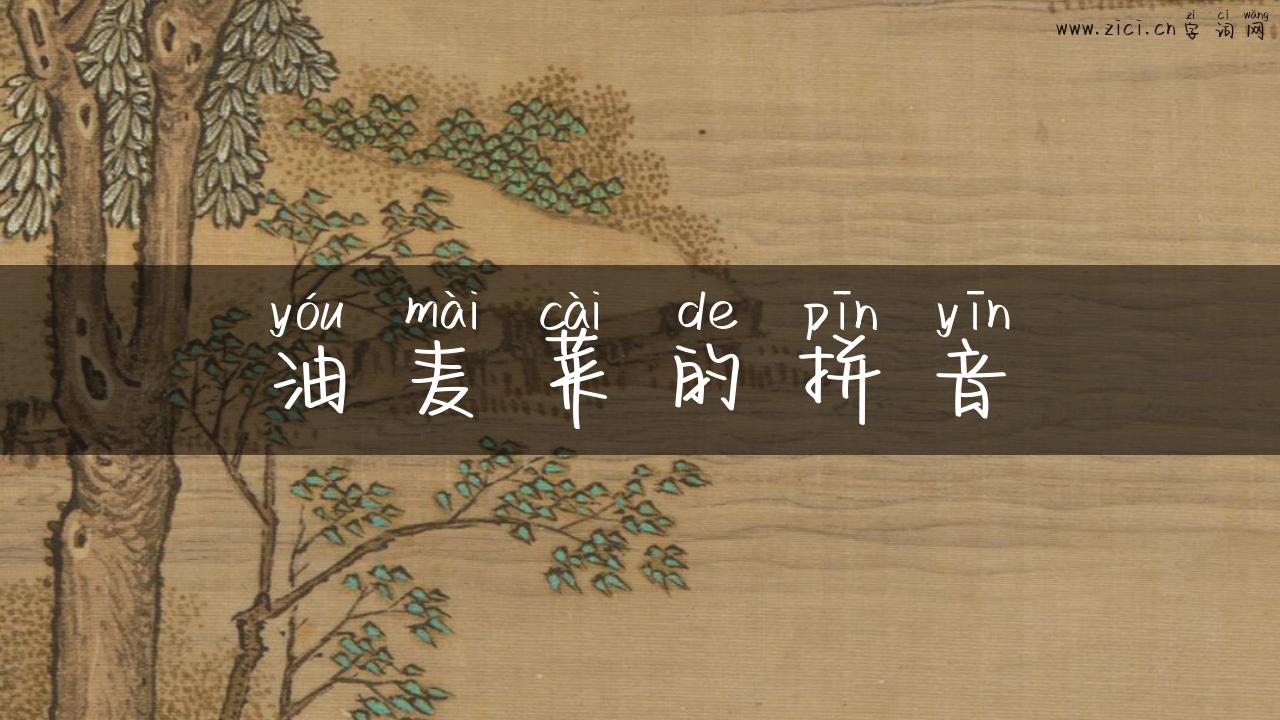 zì cí wǎng
www.zici.cn 字词网
yóu mài cài de pīn yīn
油麦菜的拼音